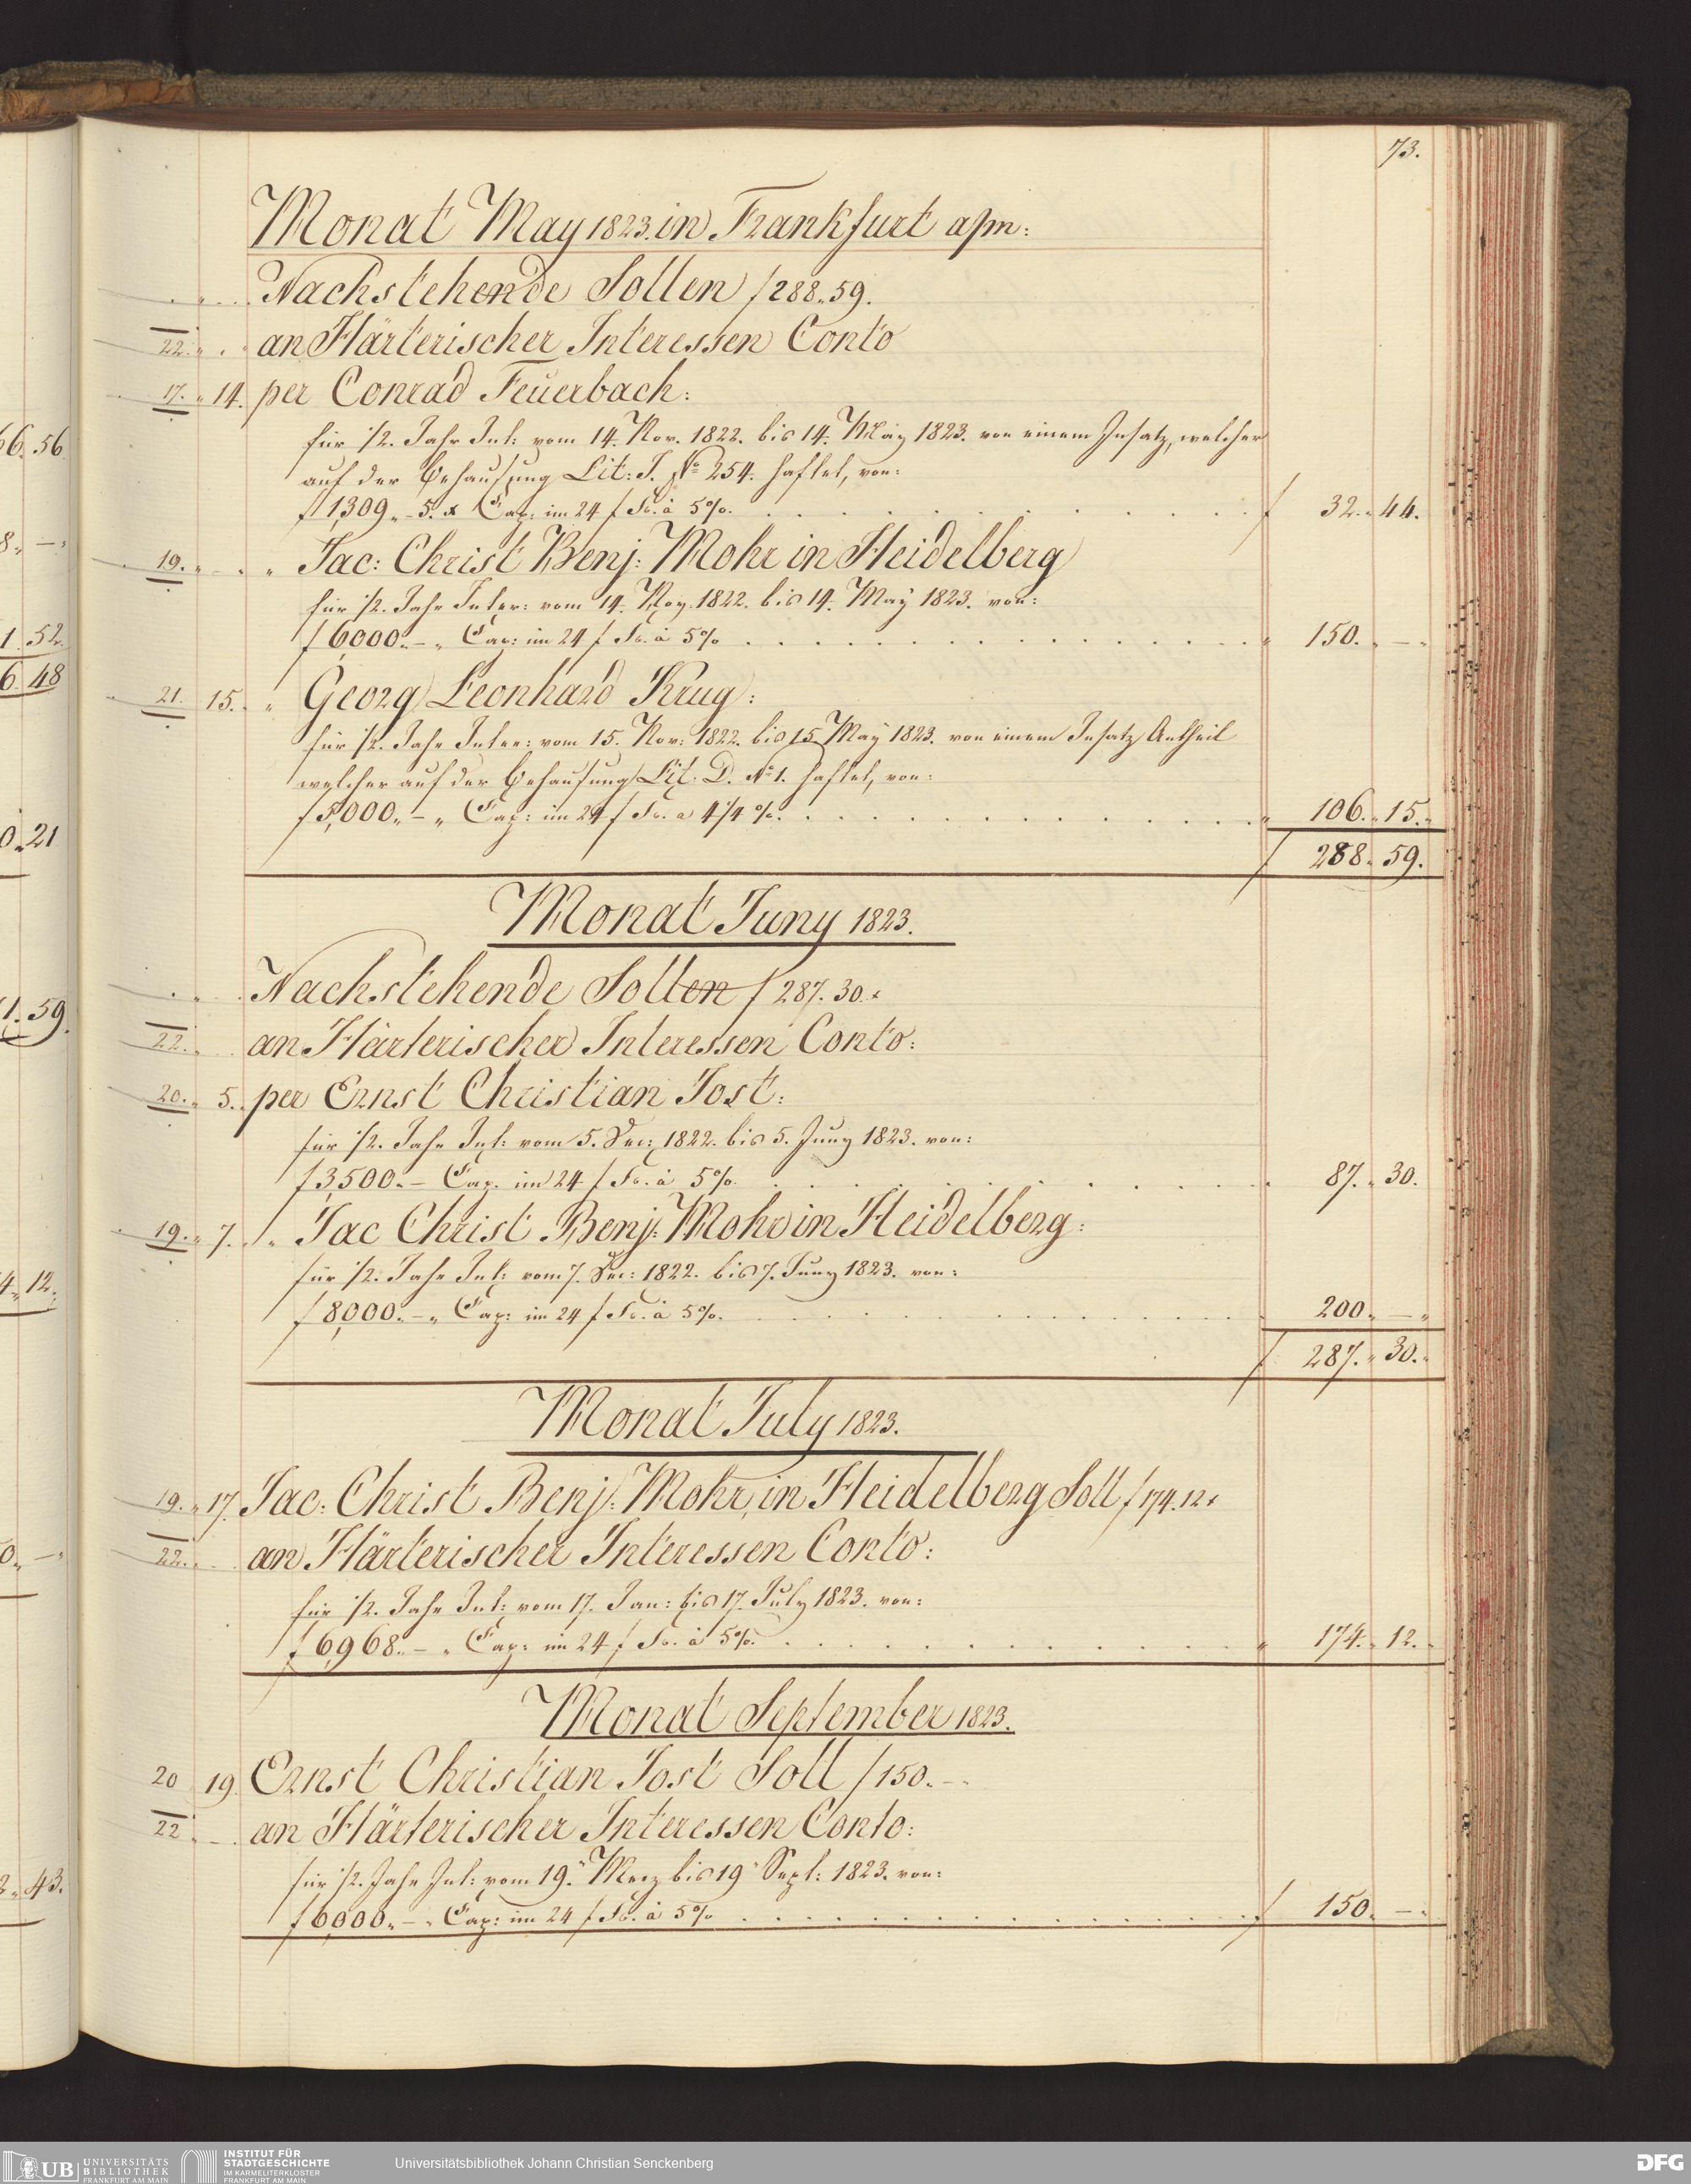 73.
Monat May 1823. in Frankfurt a/m:
Nachstehende Sollen f 288.. 59.
22. an Härterischer Interessen Conto
17. 14. per Conrad Feuerbach:
für 1/2. Jahr Int: vom 14. Nov. 1822. bis 14. May 1823. von einem Insatz, welcher
auf der Behausung Lit: J. No 254. haftet, von:
f 1,309.. 5. x Cap: im 24 f Fs. à 5%. f 32.. 44.
19. „ Jac: Christ Benj: Mohr in Heidelberg
für 1/2. Jahr Inter: vom 14. Nov. 1822. bis 14. May 1823. von:
f 6,000.. – „ Cap: im 24 f Fs. à 5% „ 150. „ –
21. 15. „ Georg Leonhard Krug:
für 1/2. Jahr Inter: vom 15. Nov: 1822. bis 15. May 1823. von einem Insatz Antheil
welcher auf der Behausung Lit. D. No 1. haftet, von:
f 5,000.. – „ Cap: im 24 f Fs. a 4 1/4 %. „ 106. „ 15.
f 288. 59.
Monat Juny 1823.
Nachstehende Sollen f 287. 30. x
22. an Härterischer Interessen Conto:
20. 5. per Ernst Christian Jost:
für 1/2. Jahr Int: vom 5. Dec: 1822. bis 5. Juny 1823. von:
f 3,500.. – Cap. im 24 f Fs. à 5%. 87. „ 30.
19. 7. „ Jac Christ Benj: Mohr in Heidelberg:
für 1/2. Jahr Int: vom 7. Dec: 1822. bis 7. Juny 1823. von:
f 8,000.. – „ Cap: im 24 f Fs. à 5%. 200. „ –
f 287. „ 30.
Monat July 1823.
19. 17. Jac: Christ Benj: Mohr, in Heidelberg Soll f 174. 12 x
22. an Härterischer Interessen Conto:
für 1/2. Jahr Int: vom 17. Jan: bis 17. July 1823. von:
f 6,968.. – „ Cap: im 24 f Fs. à 5%. „ 174. „ 12.
Monat September 1823.
20 19 Ernst Christian Jost Soll f 150. –
22 an Härterischer Interessen Conto:
für 1/2. Jahr Int: vom 19. Merz bis 19 Sept: 1823. von:
f 6,000.. – „ Cap: im 24 f Fs. à 5% f 150. –
66. 56
8. –
1. 52.
6. 48
0. 21
1. 59.
4. 12.
0. –
3. 43.
UB UNIVERSITÄTS BIBLIOTHEK FRANKFURT AM MAIN
INSTITUT FÜR STADTGESCHICHTE IM KARMELITERKLOSTER FRANKFURT AM MAIN
Universitätsbibliothek Johann Christian Senckenberg
DFG